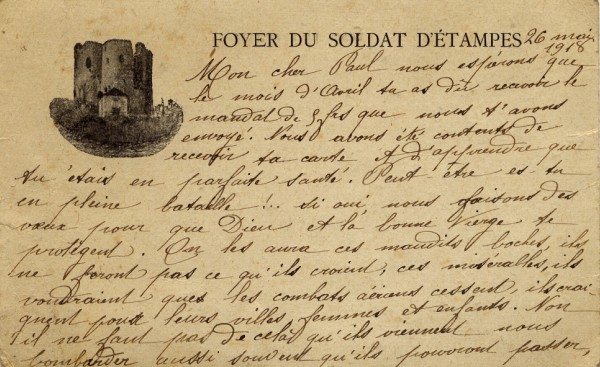 FOYER DU SOLDAT D'ÉTAMPES 26 mai
1918
Mon cher Paul nous espérons que
le mois d'Avril tu as du recevoir le
mandat de 5 frs que nous t'avons
envoyé. Nous avons été contents de
recevoir ta carte et d'apprendre que
tu étais en parfaite santé. Peut être es tu
en pleine bataille !.. si oui nous faisons des
vœux pour que Dieu et la bonne Vierge te
protègent. On les aura ces maudits boches, ils
ne feront pas ce qu'ils croient, ces misérables, ils
voudraient que les combats aériens cessent, ils crai-
gnent pour leurs villes, femmes et enfants. Non
il ne faut pas de cela, qu'ils viennent nous
bombarder aussi souvent qu'ils pourront passer,